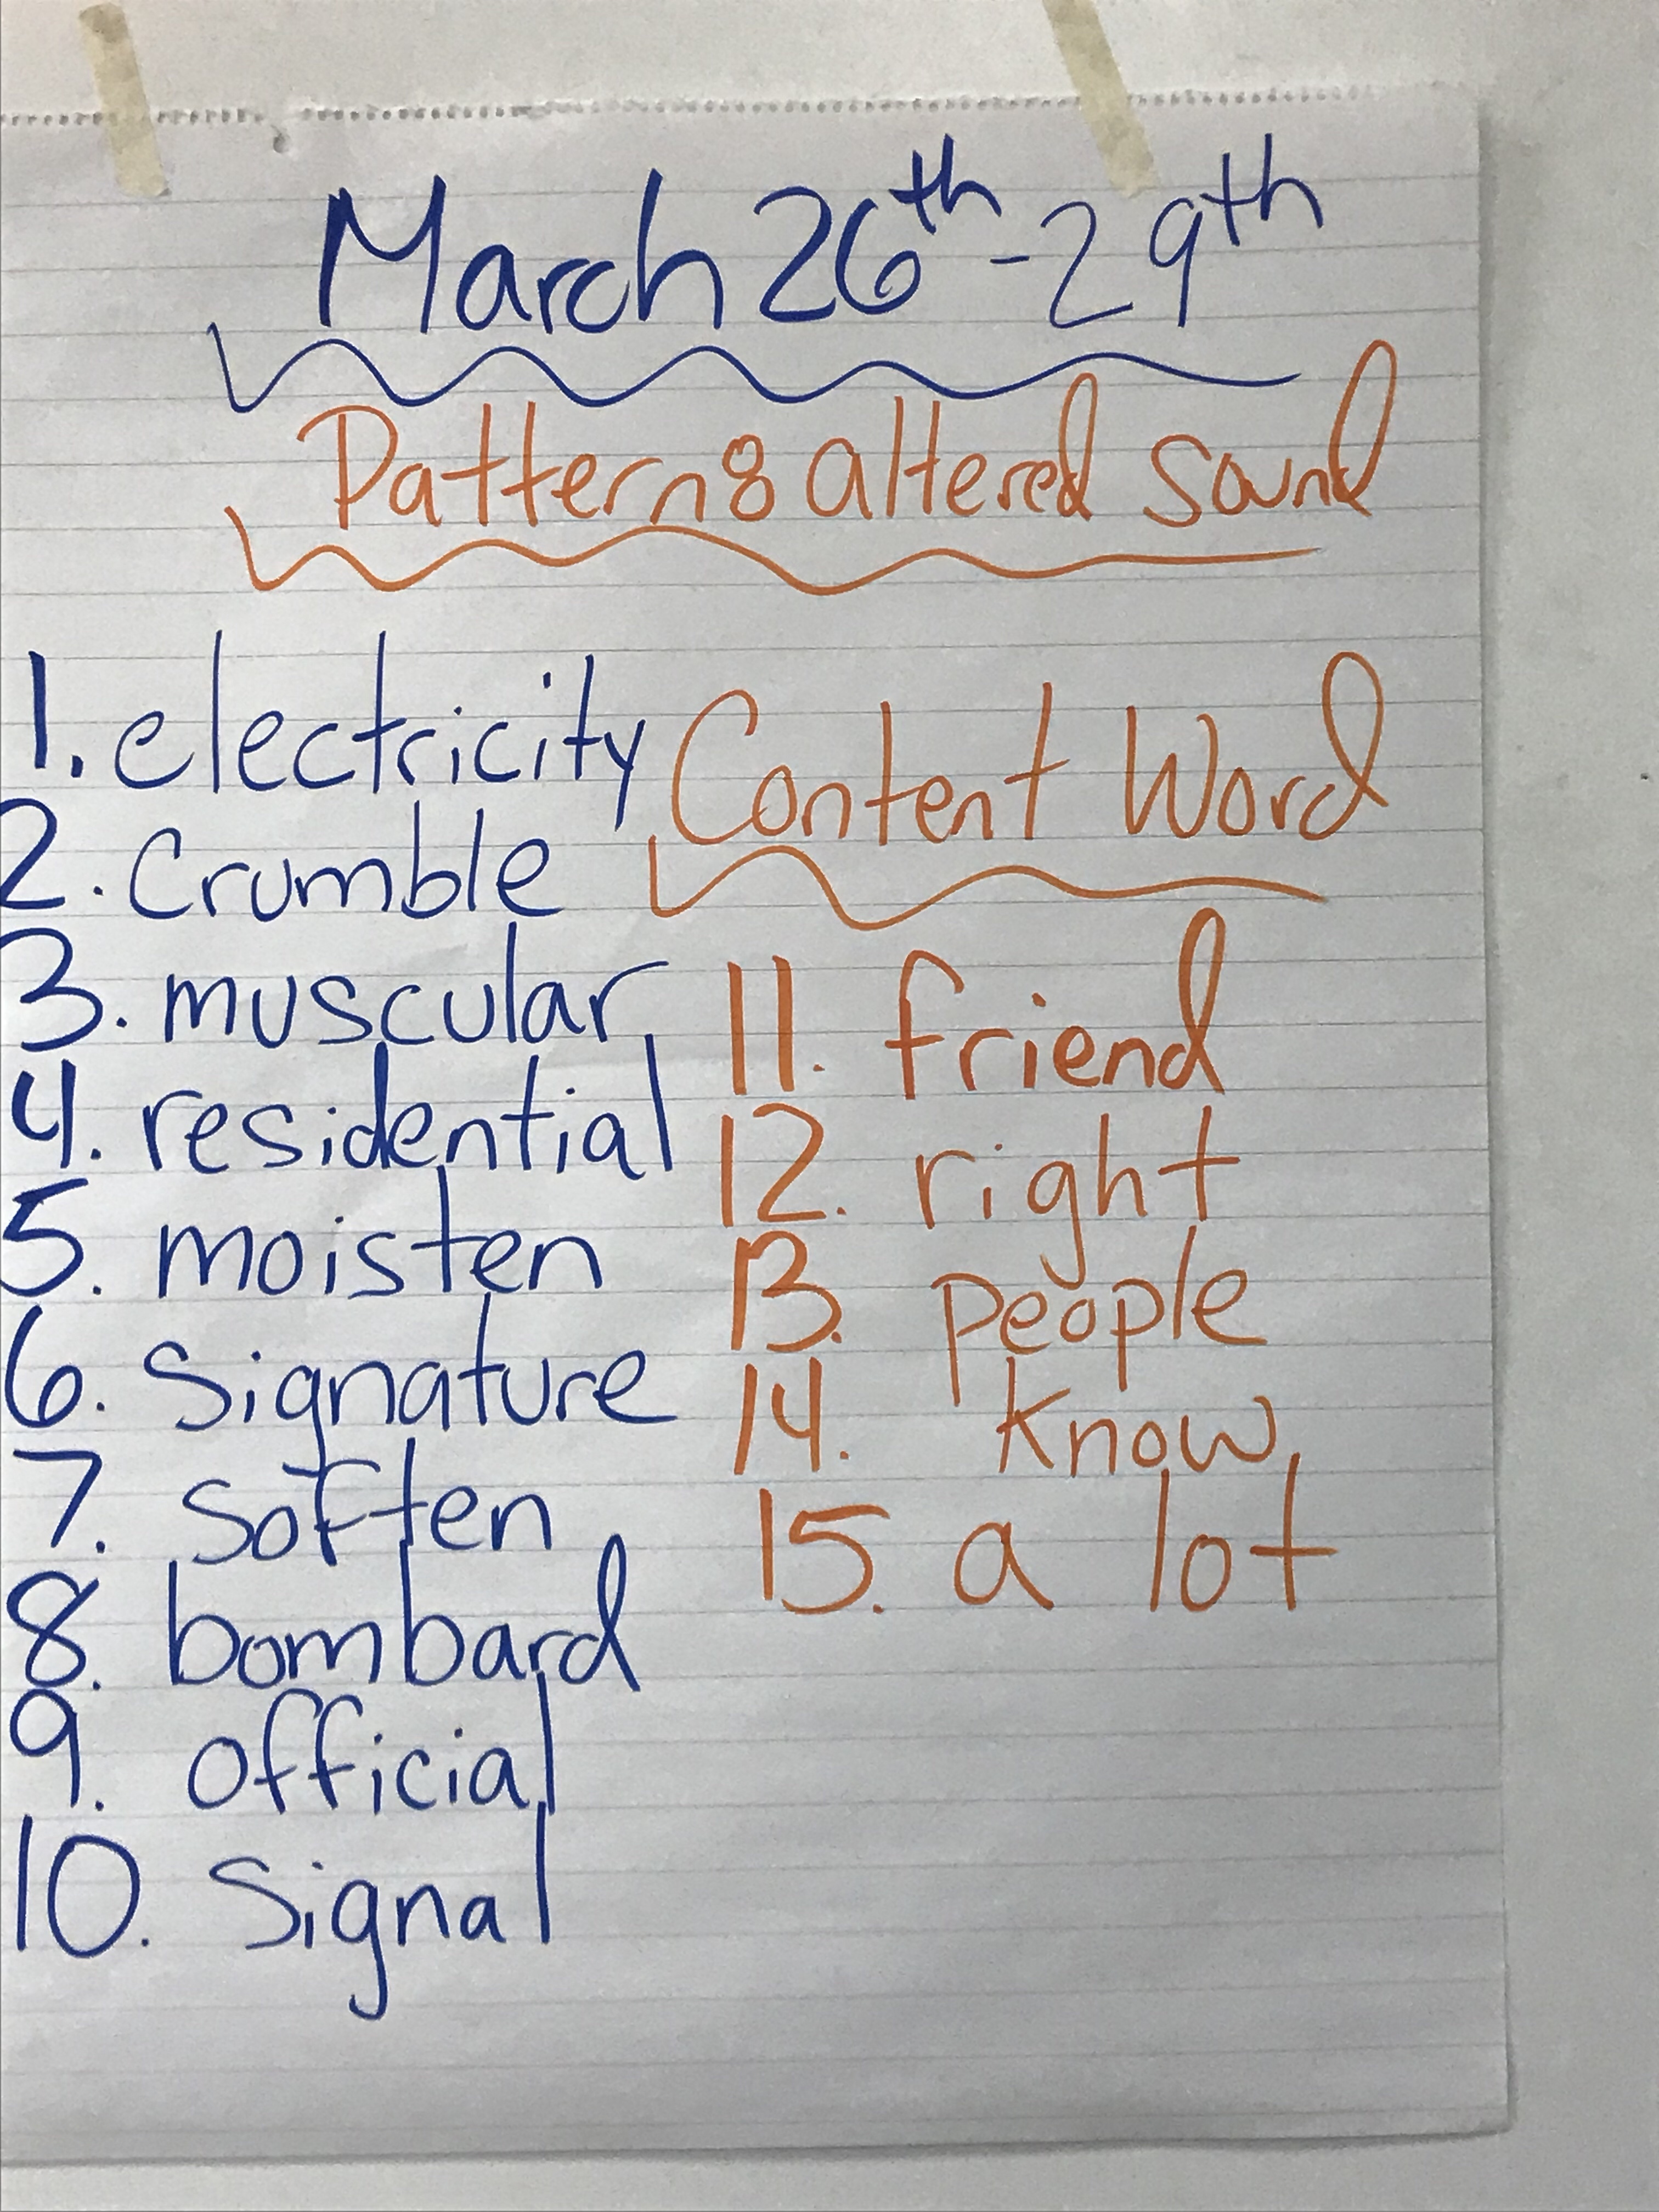 March 26th-29th
Pattern: altered sound
1. electricity
2. Crumble
3. muscular
4. residential
5. moisten
6. Signature
7. soften
8. bombard
9. official
10. Signal
Content Word
11. friend
12. right
13. people
14. know
15. a lot